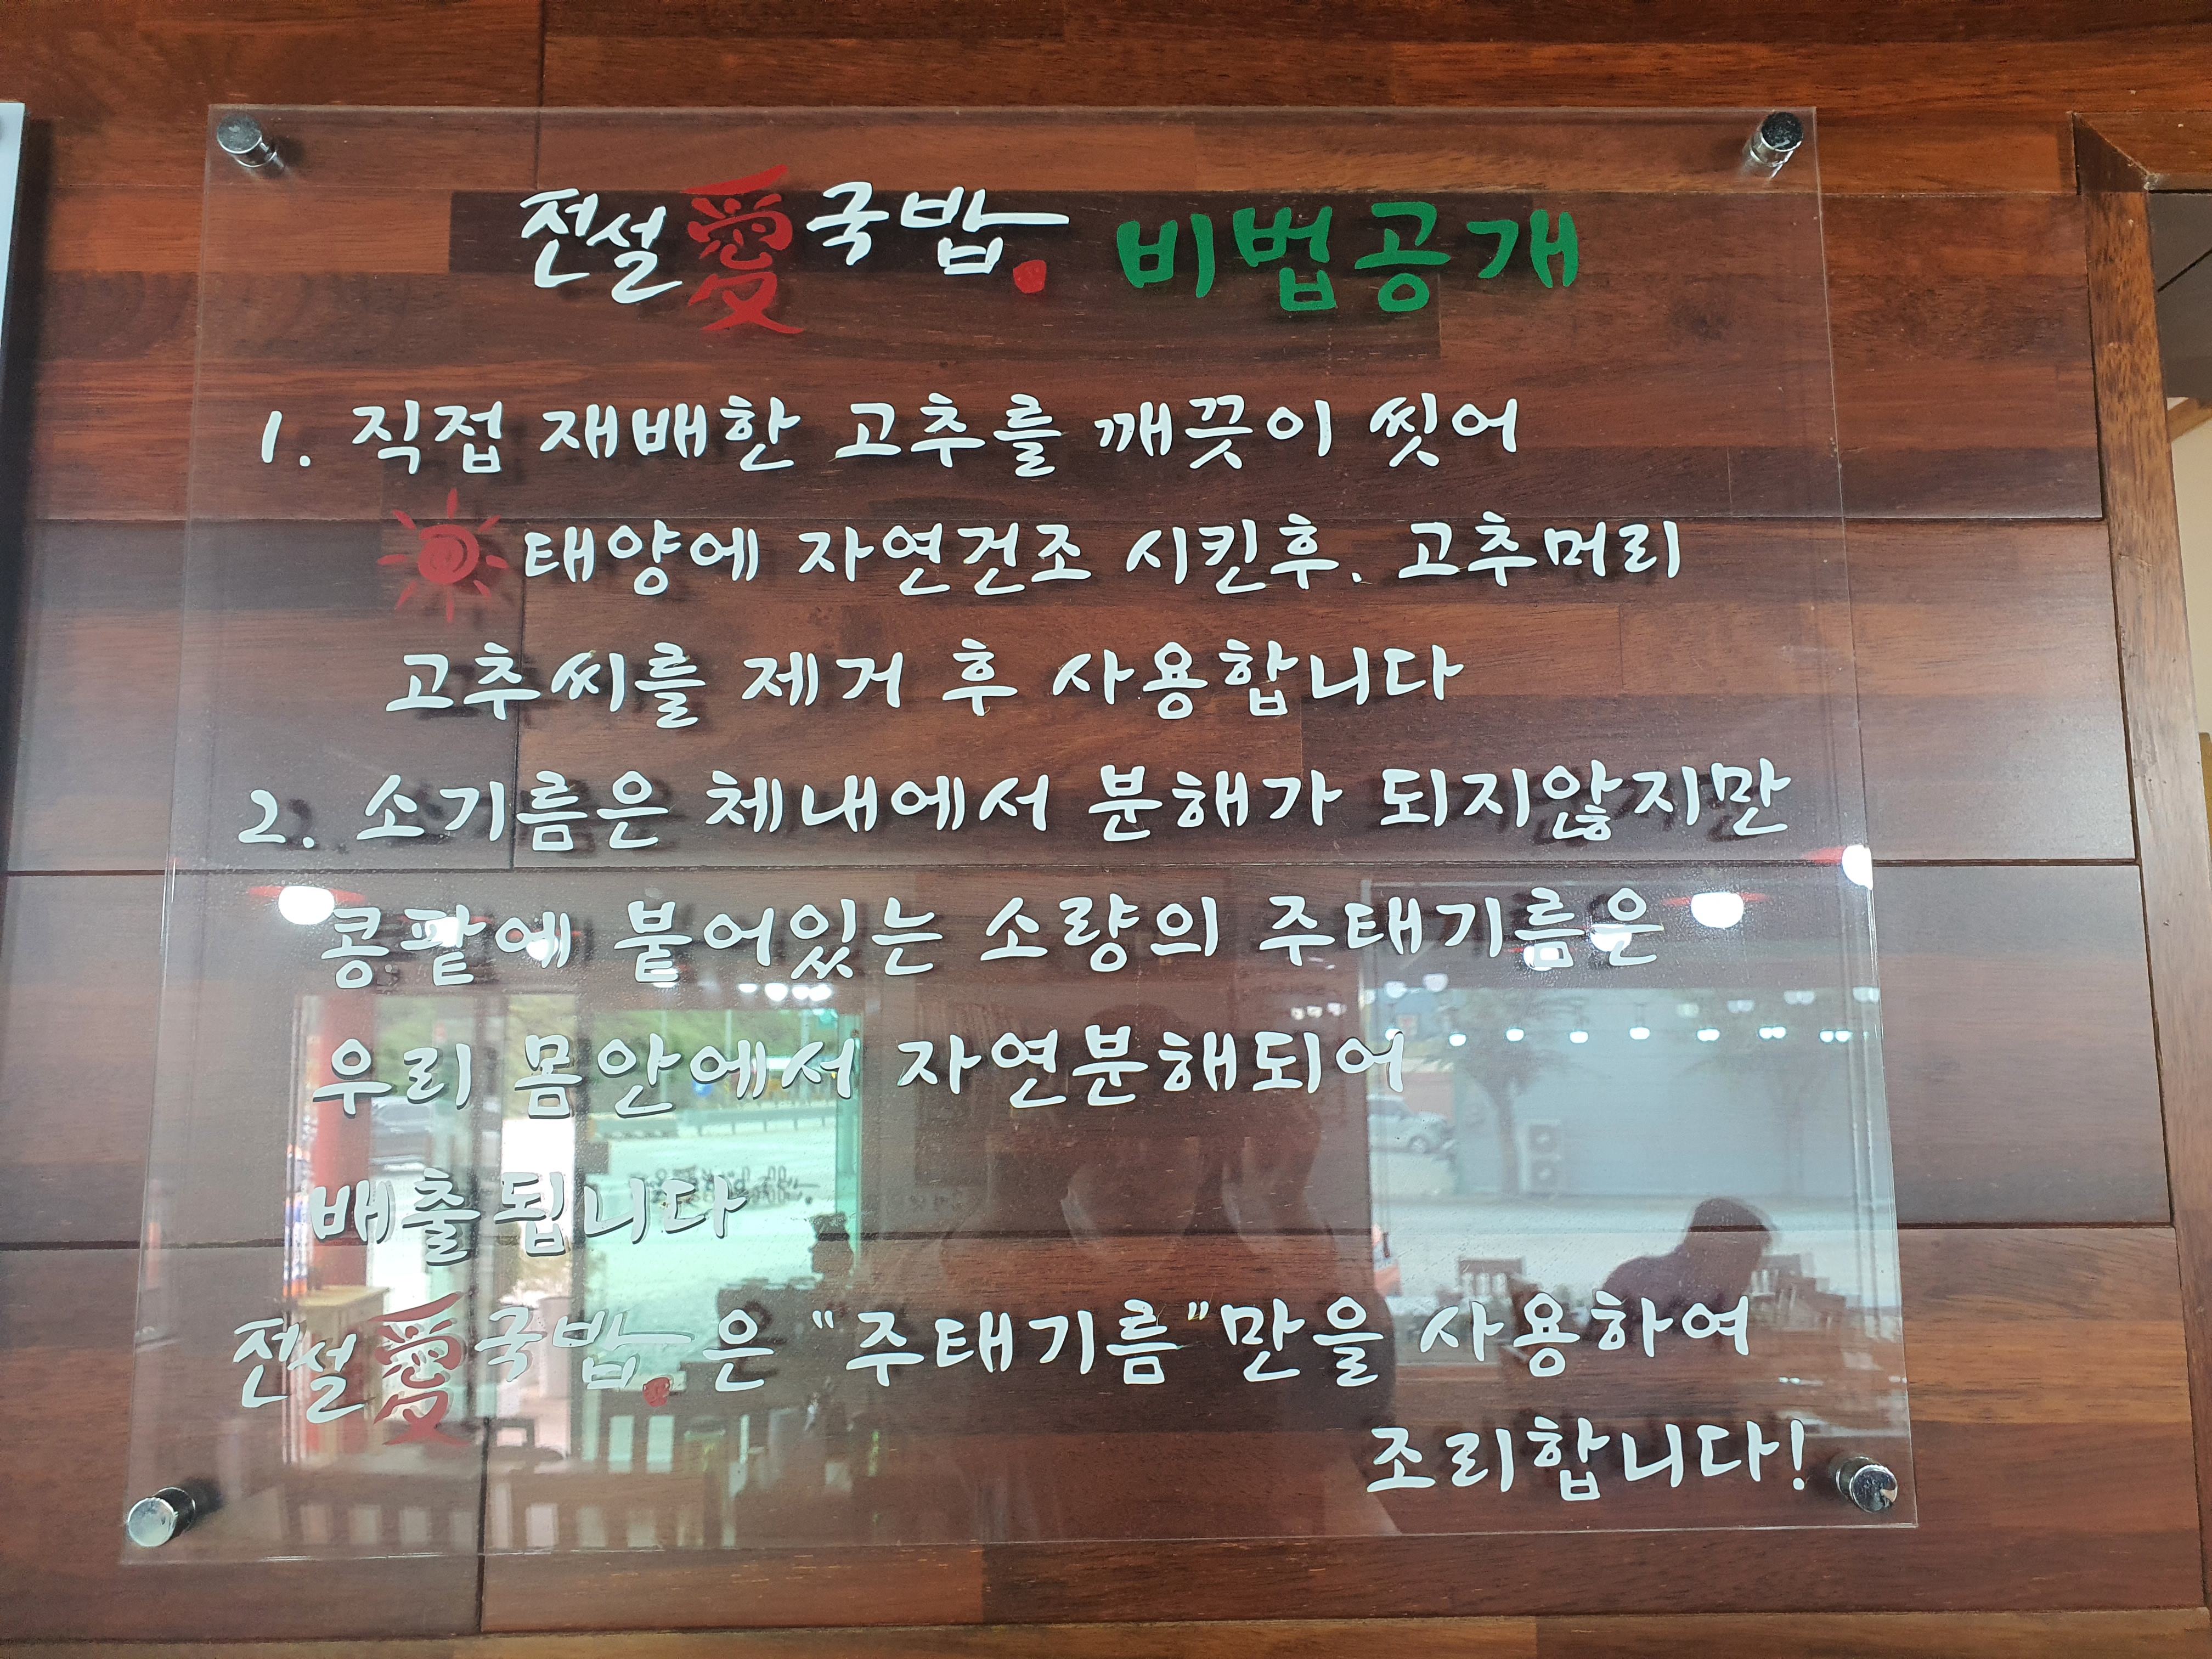 전설愛국밥. 비법공개
1. 직접 재배한 고추를 깨끗이 씻어
태양에 자연건조 시킨후. 고추머리
고추씨를 제거 후 사용합니다
2. 소기름은 체내에서 분해가 되지않지만
콩팥에 붙어있는 소량의 주태기름은
우리 몸안에서 자연분해되어
배출됩니다
전설愛국밥.은 "주태기름"만을 사용하여
조리합니다!